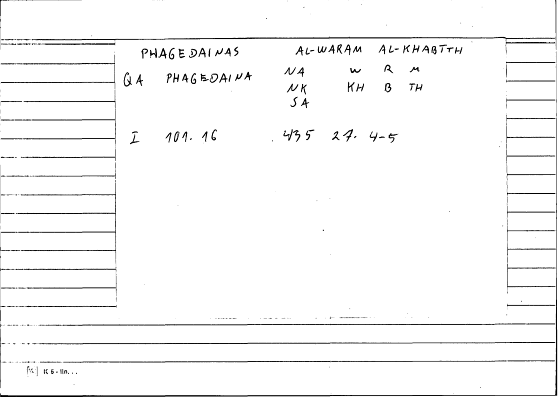 PHAGEDAINAS AL-WARAM AL-KHABTTH
QA PHAGEDAINA NA W R M
NK KH B TH
SA
I 101. 16 435 27. 4-5